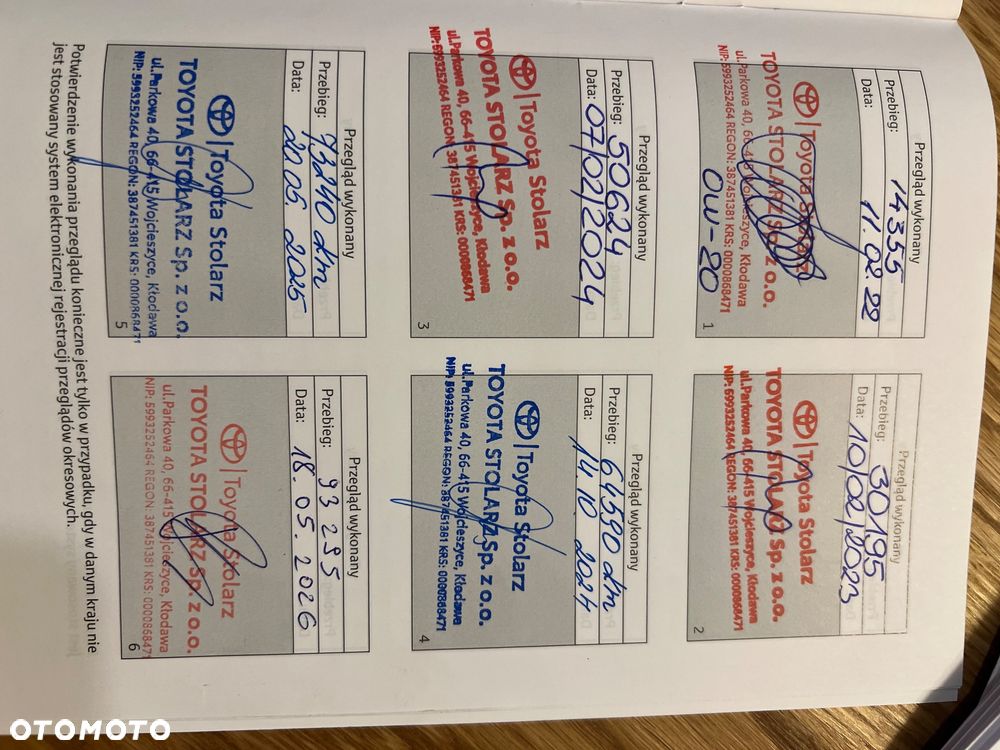 Przegląd wykonany
Przebieg: 14355
Data: 11.02.22
Toyota Stolarz
TOYOTA STOLARZ Sp. z o.o.
ul.Parkowa 40, 66-415 Wojcieszyce, Kłodawa
NIP: 5993252464 REGON: 387451381 KRS: 0000868471
OW-20
1
Przegląd wykonany
Przebieg: 30195
Data: 10/02/2023
Toyota Stolarz
TOYOTA STOLARZ Sp. z o.o.
ul.Parkowa 40, 66-415 Wojcieszyce, Kłodawa
NIP: 5993252464 REGON: 387451381 KRS: 0000868471
2
Przegląd wykonany
Przebieg: 50624
Data: 07/02/2024
Toyota Stolarz
TOYOTA STOLARZ Sp. z o.o.
ul.Parkowa 40, 66-415 Wojcieszyce, Kłodawa
NIP: 5993252464 REGON: 387451381 KRS: 0000868471
3
Przegląd wykonany
Przebieg: 64590 dm
Data: 14.10 2024
Toyota Stolarz
TOYOTA STOLARZ Sp. z o.o.
ul.Parkowa 40, 66-415 Wojcieszyce, Kłodawa
NIP: 5993252464 REGON: 387451381 KRS: 0000868471
4
Przegląd wykonany
Przebieg: 79240 dm
Data: 20.06 2025
Toyota Stolarz
TOYOTA STOLARZ Sp. z o.o.
ul.Parkowa 40, 66-415 Wojcieszyce, Kłodawa
NIP: 5993252464 REGON: 387451381 KRS: 0000868471
5
Przegląd wykonany
Przebieg: 93295
Data: 18.05.2026
Toyota Stolarz
TOYOTA STOLARZ Sp. z o.o.
ul.Parkowa 40, 66-415 Wojcieszyce, Kłodawa
NIP: 5993252464 REGON: 387451381 KRS: 0000868471
6
Potwierdzenie wykonania przeglądu konieczne jest tylko w przypadku, gdy w danym kraju nie
jest stosowany system elektronicznej rejestracji przeglądów okresowych.
OTOMOTO